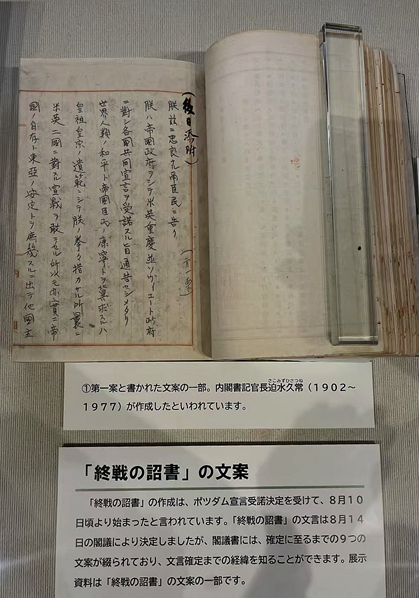 (後日添附)
朕茲ニ忠良ナル帝臣民ニ告ク
朕ハ帝国政府ヲシテ米英重慶並ソヴィエート政府
ニ対シ各国共同宣言ヲ受諾スル旨通告セシメタリ
世界人類ノ和平ト帝国臣民ノ康寧トヲ冀求スルハ
皇祖皇宗ノ遺範ニシテ朕ノ拳々措カサル所曩ニ
米英二国ニ対スル宣戦ヲ敢テセル所以亦実ニ帝
国ノ自存ト東亜ノ安定トヲ庶幾スルニ出テ他国主
①第一案と書かれた文案の一部。内閣書記官長迫水久常(1902～
1977)が作成したといわれています。
「終戦の詔書」の文案
「終戦の詔書」の作成は、ポツダム宣言受諾決定を受けて、8月10
日頃より始まったと言われています。「終戦の詔書」の文言は8月14
日の閣議により決定しましたが、閣議書には、確定に至るまでの9つの
文案が綴られており、文言確定までの経緯を知ることができます。展示
資料は「終戦の詔書」の文案の一部です。